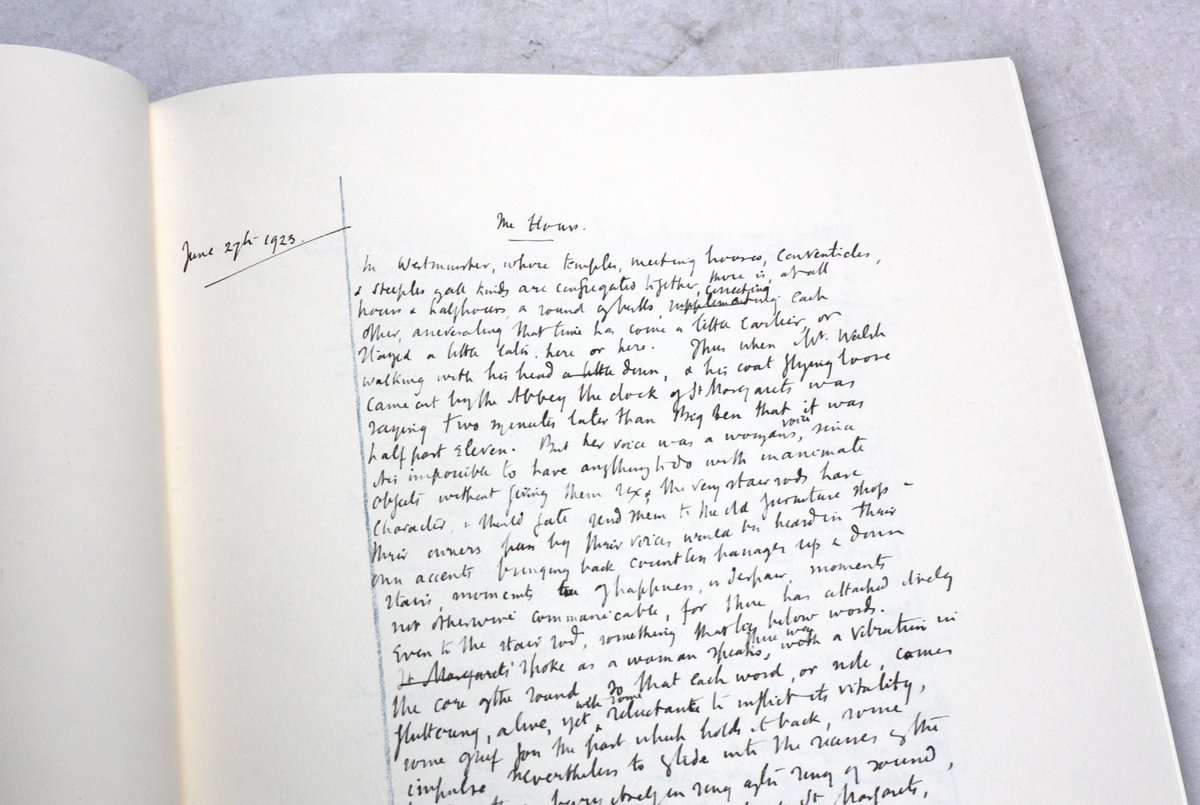 June 27th 1923.
The Hours.
In Westminster, where temples, meeting houses, conventicles,
& steeples of all kinds are congregated together, there is, at all
hours & halfhours, a round of bells, correcting
supplementing each
other, asseverating that time has come a little earlier, or
stayed a little later, here or here. Thus when Mr. Walsh
walking with his head a little down, & his coat flying loose
came out by the Abbey the clock of St Margarets was
saying two minutes later than Big Ben that it was
half past eleven. But her voice was a woman's, voice since
it is impossible to have anything to do with inanimate
objects without giving them sex; the very stair rods have
character, & should fate send them to the old furniture shop -
their owners pass by their voices would be heard in their
own accents bringing back countless passages up & down
stairs, moments of happiness, or despair, moments
not otherwise communicable, for there has attached itself
Even to the stair rod, something that lies below words.
St Margarets' spoke as a woman speaks, there was with a vibration in
the core of the sound, so that each word, or note, comes
fluttering, alive, yet with some reluctance to inflict its vitality,
some grief for the past which holds it back, some
impulse nevertheless to glide into the recesses of the
ring after ring of sound,
St Margarets,